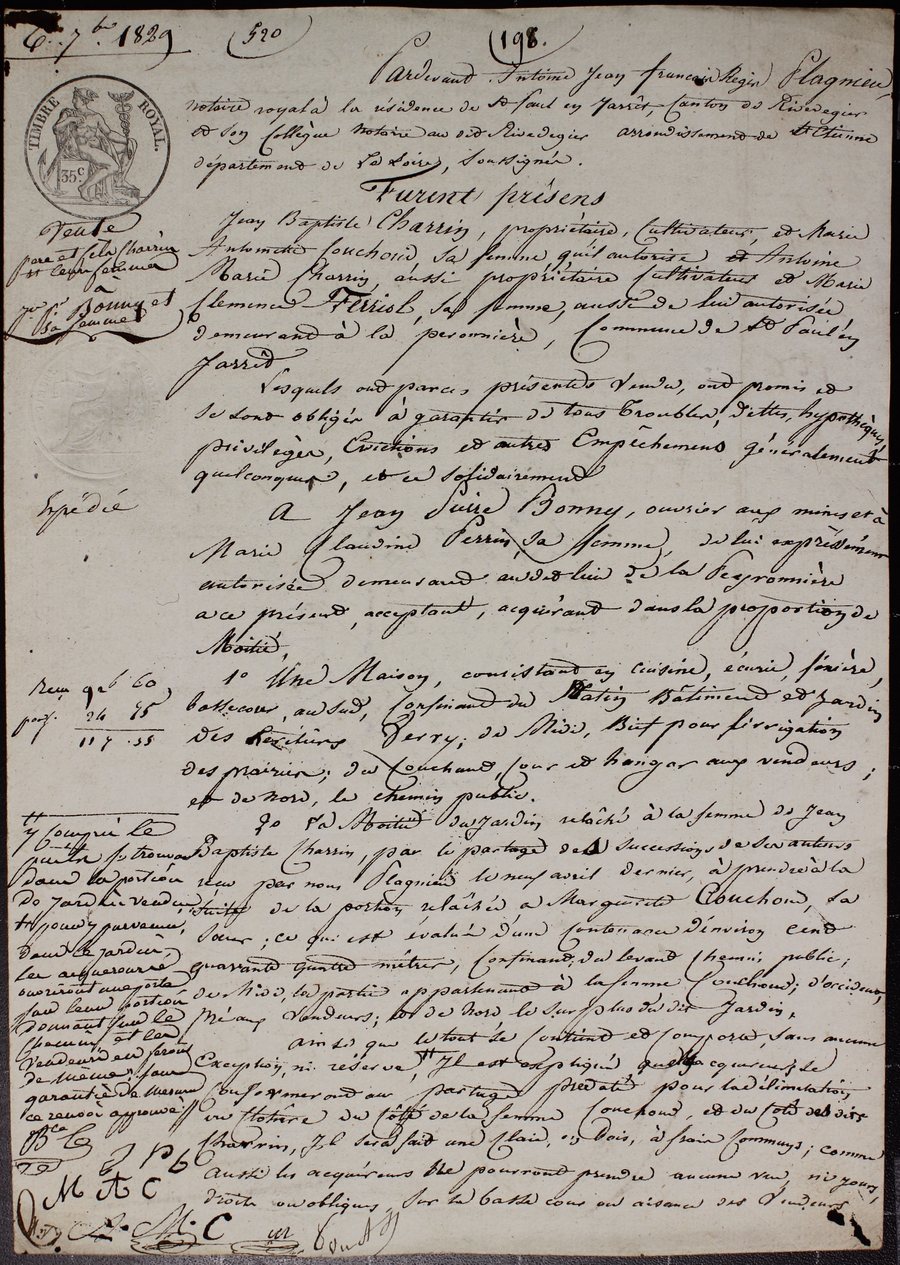 6. 7.bre 1829
520
198.
TIMBRE ROYAL.
35c
Pardevant Antoine Jean françois Régis Plagnieu,
notaire royal à la résidence de St Paul en Jarrêt, Canton de Rivedegier
et son Collègue notaire au dit Rivedegier arrondissement de St Etienne
département de La Loire, soussignés.
Furent présens
Jean Baptiste Charrin, propriétaire, Cultivateur, et Marie
Antoinette Couchoud sa femme qu'il autorise et Antoine
Marie Charrin aussi propriétaire Cultivateur et Marie
Clemence Ferriol, sa femme, aussi de lui autorisée
demeurand à la peronnière, Commune de St Paul en
Jarrêt
Lesquels ont par ces présentes vendu, ont promis et
se sont obligés à garantir de tous Troubles, dettes, hypothèques,
privilèges, Evictions et autres Empêchemens généralement
quelconques, et ce solidairement
A Jean Pierre Bonny, ouvrier aux mines et à
Marie Claudine Perrin, sa femme, de lui expressément
autorisée demeurand au dit lieu de la Peyronnière
a ce présend, acceptant, acquérand dans la proportion de
Moitié,
1o Une Maison, consistant en cuisine, écurie, fenière,
basse cour, au sud, Confinand du Matin Bâtiment et Jardin
des heritiers Perry; de Midi, Bief pour l'irrigation
des prairies; du Couchand, Cour et hangar aux vendeurs;
et de nord, le chemin public.
2o La Moitié du Jardin relâché à la femme de Jean
Baptiste Charrin, par le partage des successions de ses auteurs
recu par nous Plagnieu le neuf avril dernier, à prendre à la
suite de la portion relâchée à Marguerite Couchoud, sa
sœur; ce qui est évalué d'une contenance d'environ cent
quarante quatre mètres, Confinand, du levand Chemin public;
de Midi, la partie appartenand à la femme Couchoud; d'occident,
Pré aux Vendeurs; et de Nord le surplus du dit Jardin,
ainsi que le tout se Contient et Comporte, sans aucune
Exception, ni réserve, Il est expliqué que les acquereurs se
Conformerond au partage prédaté pour la délimitation
du côté de la femme Couchoud, et du côté des dits
Charrin, Il sera fait une Claie, en Bois, à frais Communs; comme
aussi les acquéreurs ne pourrond prendre aucune vue, ni jours,
droite ou obliques sur la basse cour ou aisance des Vendeurs
Vente
pere et fils Charrin
et leurs femmes
à
Bonny et
sa femme
Expédié
recu 9 et 60
24 75
117 35
y Compris le
puits se trouvand
dans la portion
de Jardin vendue
pour y parvenir,
dans le jardin,
les acquereurs
ouvriront une porte
sur leur portion
donnant sur le
chemin, et les
Vendeurs en feront
de même sous
garantie de mesure
ce renvoi approuvé
J P b
M A C
M. C